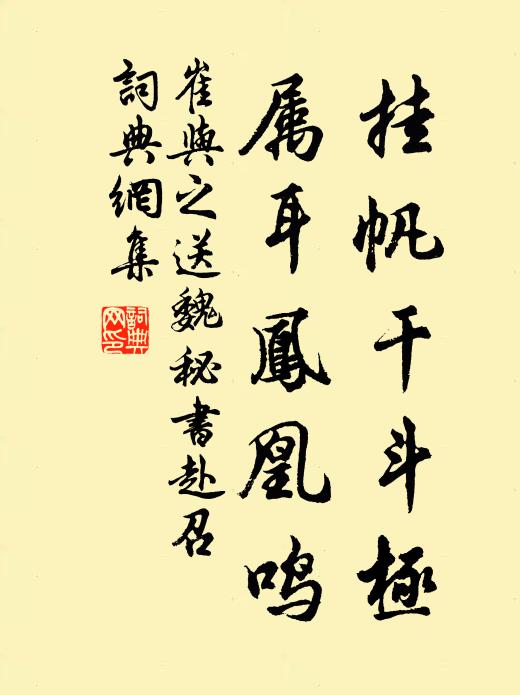 挂帆干斗極
属耳鳳凰鳴
崔與之送魏秘書赴召
詞典網集
詞典网印